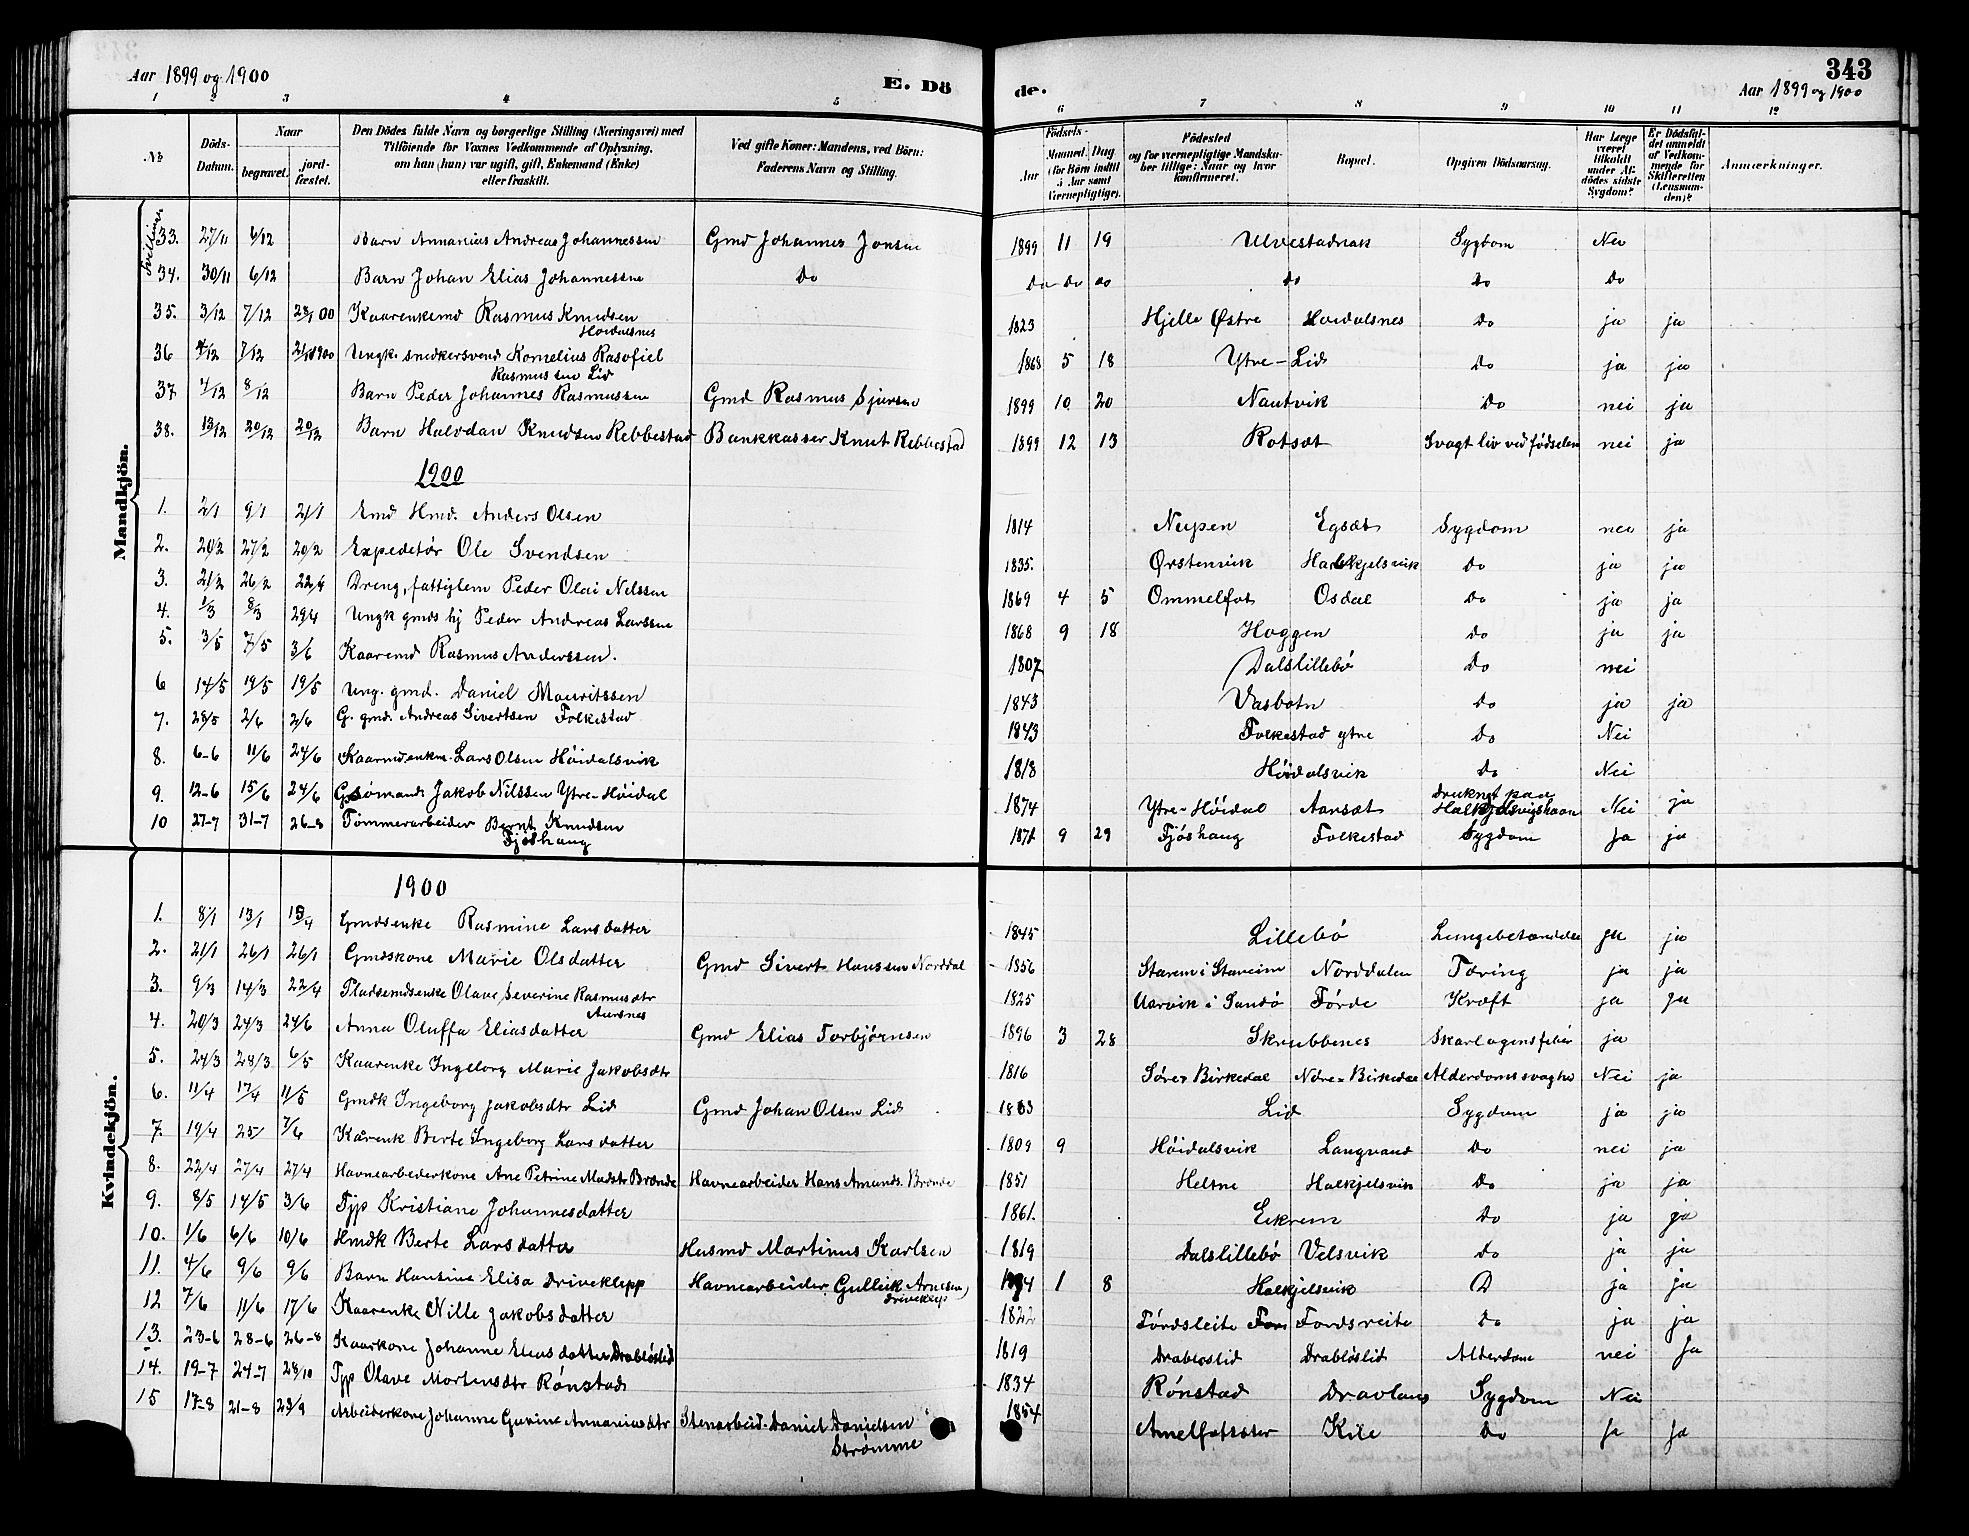 343
Aar 1899 og 1900 E. Dö de. Aar 1899 og 1900
1 2 3 4 5 6 7 8 9 10 11 12
No
Döds-Datum.
Naar
begravet. jord-fæstet.
Den Dödes fulde Navn og borgerlige Stilling (Næringsvei) med
Tilföiende for Voxnes Vedkommende af Oplysning,
om han (hun) var ugift, gift, Enkemand (Enke)
eller fraskilt.
Ved gifte Koner: Mandens, ved Börn:
Faderens Navn og Stilling.
Födsels-
Aar Maaned. Dag
(for Börn indtil 5 Aar samt Værnepligtige).
Födested
og for værnepligtige Mandskaber tillige: Naar og hvor konfirmeret.
Bopæl.
Opgiven Dödsaarsag.
Har Læge været tilkaldt under Afdödes sidste Sygdom?
Er Dödsfaldet anmeldt af Vedkommende for Skifteretten (Lensmanden)?
Anmærkninger.
Mandkjön.
Tvillinger
33. 27/11 6/12 Barn Annanias Andreas Johannessen Gmd Johannes Jonsen 1899 11 19 Ulvestadnak Sygdom Nei
34. 30/11 6/12 Barn Johan Elias Johannessen Do Do Do Do Do Do Do
35. 3/12 7/12 Kaarenkemd Rasmus Knudsen Hoidalsnes 1823 Hjelle Østre Hoidalsnes Do ja ja
36 4/12 7/12 Ungk. snedkersvend Kornelius Rasofiel Rasmussen Lid 1868 5 18 Ytre-Lid Do ja ja
37 4/12 8/12 Barn Peder Johannes Rasmussen Gmd Rasmus Sjursen 1899 10 20 Nautvik Do nei ja
38. 13/12 20/12 20/12 Barn Halvdan Knudsen Rebbestad Bankkasser Knut Rebbestad 1899 12 13 Rotsæt Svagt liv ved födselen nei ja
1900
1. 2/1 9/1 21/1 Emd Hmd. Anders Olsen 1814 Nupen Egsæt Sygdom nei ja
2. 20/2 27/2 20/2 Expeditör Ole Svendsen 1835. Ørstenvik Halkjelsvik Do ja ja
3. 21/2 26/2 Dreng, fattiglem Peder Olai Nilssen 1869 4 5 Ommelfot Osdal Do ja ja
4. 1/3 8/3 29/4 Ungk gmds hj Peder Andreas Larssen 1868 9 18 Hoggen do ja ja
5. 3/5 7/5 3/6 Kaaremd Rasmus Anderssen. 1807 Dalslillebö Do nei
6 14/5 19/5 19/5 Ung. gmd. Daniel Mouritssen 1843 Vasbotn Do ja ja
7. 28/5 2/6 2/6 G. gmd. Andreas Sivertsen Folkestad 1843 Folkestad ytre Do Nei
8. 6-6 11/6 24/6 Kaarmdenkm. Lars Olsen Höidalsvik 1818 Höidalsvik Do Nei
9. 12-6 15/6 24/6 Gsömand Jakob Nilssen Ytre-Höidal 1874 Ytre-Höidal Aansæt druknet paa Halkjelsvigshavn Nei ja
10 27-7 31-7 26-8 Tömmerarbeider Bernt Knudsen Fjöshaug 1871 9 29 Fjöshaug Folkestad Sygdom Ja ja
Kvindekjön.
1900
1. 8/1 13/1 Gmdsenke Rasmine Larsdatter 1845 Lillebö Lungebetændelse ja ja
2. 21/1 26/1 26/1 Gmdskone Marie Olsdatter Gmd Sivert Hanssen Norddal 1856 Starem i Stareim Norddalen Tæring ja ja
3. 9/3 14/3 22/4 Pladsemdsenke Olave Severine Rasmusdtr Aarsnes 1825 Aarvik i Sandö Förde Kræft ja ja
4. 20/3 24/3 24/6 Anna Oluffa Eliasdatter Gmd Elias Torbjörnsen 1896 3 28 Skrubbenes Skarlagensfeber ja
5. 24/3 28/3 6/5 Kaarenke Ingeborg Marie Jakobsdtr 1816 Söre Birkedal Ndre-Birkedal Alderdomssvaghed Nei ja
6. 11/4 17/4 11/5 Gmdk Ingeborg Jakobsdtr Lid Gmd Johan Olsen Lid 1863 Lid Sygdom ja ja
7. 19/4 25/ 7/6 Kårenk Berte Ingeborg Larsdatter 1809 9 Höidalsvik Langvand Do nei ja
8. 22/4 27/4 27/4 Havnearbederkone Ane Petrine Madstr Brænde Havnearbeider Hans Amunds. Brænde 1851 Heltne Halkjelsvik Do ja ja
9. 8/5 14/5 3/6 Tjp Kristiane Johannesdatter 1861. Eikrem Do ja ja
10. 1/6 6/6 10/6 Hmdk Berte Larsdatter Husmd Martinus Karlsen 1819 Dalslillebö Velsvik Do ja ja
11. 4/6 9/6 9/6 Barn Hansine Elisa Driveklepp Havnearbeider Gullick Arnesen Driveklep 1 8 Halkjelsvik D ja ja
12 7/6 11/6 17/6 Kaarenke Nille Jakobsdatter 1822 Fördsleite Fordsreite Do ja ja
13. 23-6 28-6 26-8 Kaarkone Johanne Eliasdatter Drabløslid 1819 Drabløslid Drabløslid Alderdom nei Ja
14. 19-7 24-7 28/10 Tjp Olave Mortensdtr Rønstad 1834 Rønstad Dravlaus Sygdom Nei
15 17-8 21-8 23/9 Arbeiderkone Johanne Gurine Annaniasdtr Stenarbeid. Daniel Danielsen Strømme 1854 Amelfotsæter Kile Do Ja Ja